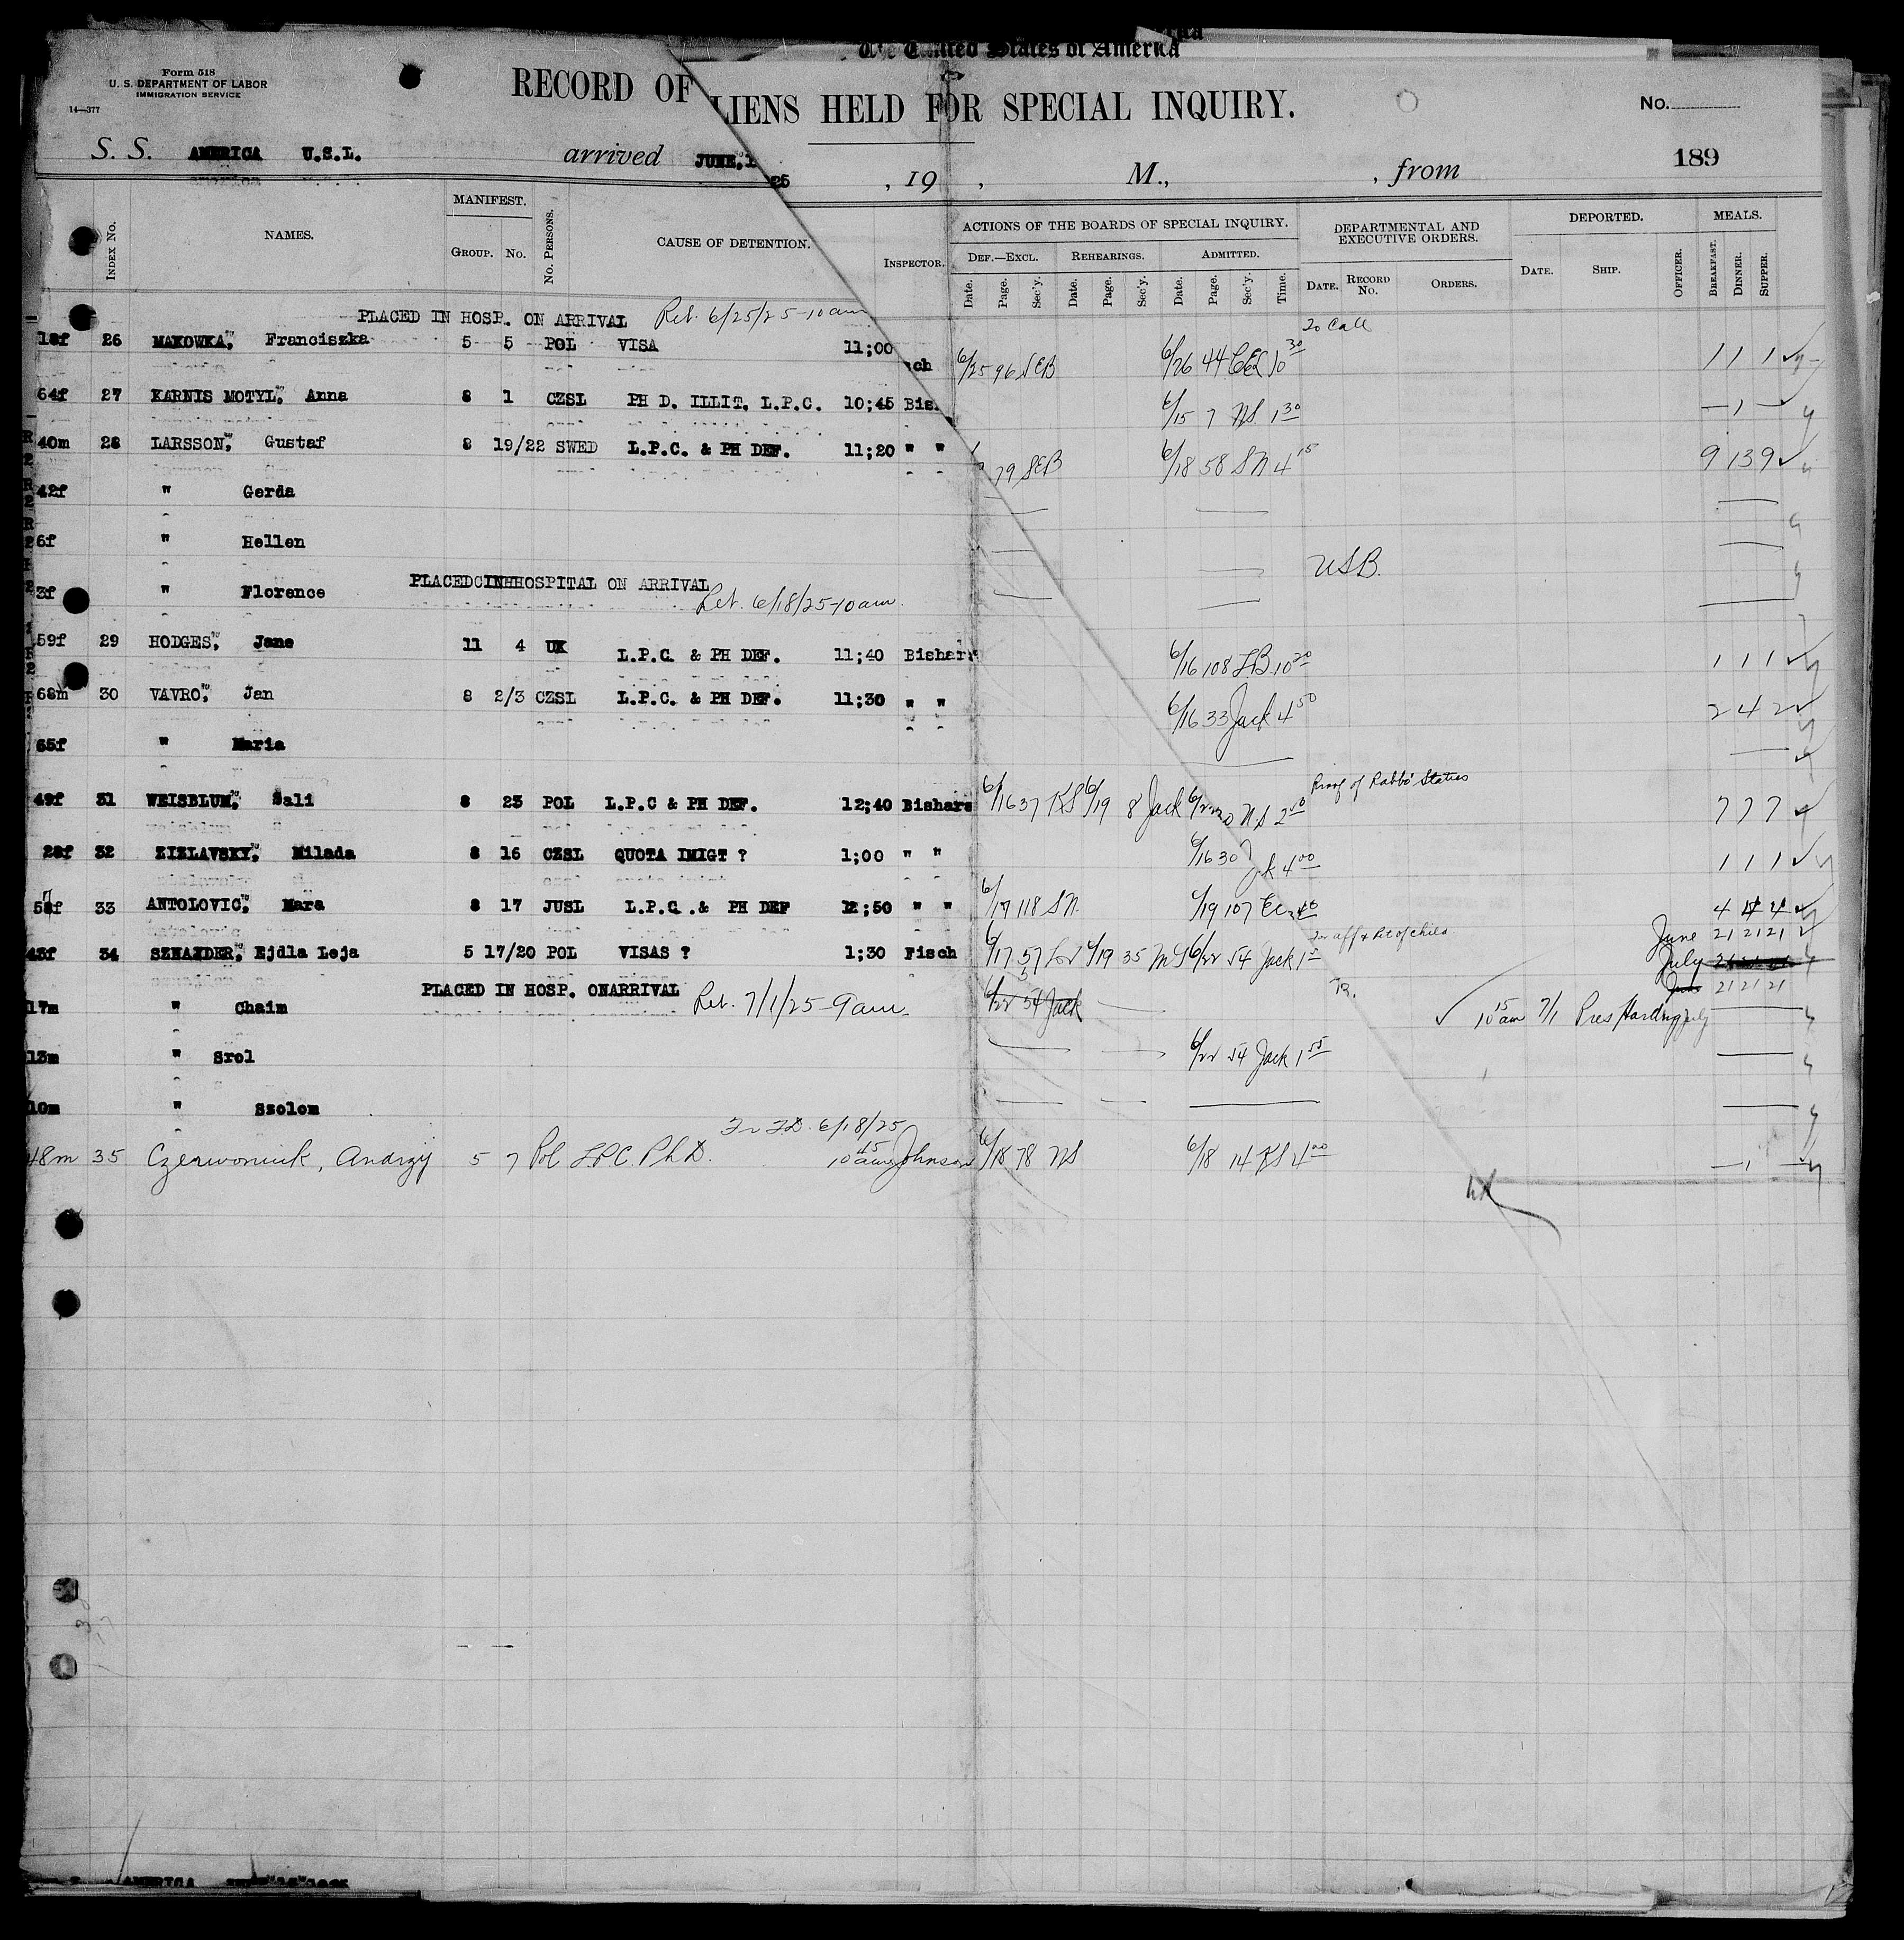 The United States of America
Form 518
U. S. DEPARTMENT OF LABOR
IMMIGRATION SERVICE
14—377
RECORD OF LIENS HELD FOR SPECIAL INQUIRY.
No.
S. S. AMERICA U.S.L. arrived JUNE, 25 , 19 , M., , from 189
INDEX No. NAMES. MANIFEST. GROUP. No. No. PERSONS. CAUSE OF DETENTION. INSPECTOR. ACTIONS OF THE BOARDS OF SPECIAL INQUIRY. DEF.—EXCL. REHEARINGS. ADMITTED. DEPARTMENTAL AND EXECUTIVE ORDERS. DEPORTED. MEALS.
Date. Page. Sec'y. Date. Page. Sec'y. Date. Page. Sec'y. Time. DATE. RECORD No. ORDERS. DATE. SHIP. OFFICER. BREAKFAST. DINNER. SUPPER.
PLACED IN HOSP. ON ARRIVAL Ret. 6/25/25-10am
18f 26 MAKOWKA, Franciszka 5 5 POL VISA 11;00 ch 6/25 96 SEB 6/26 44 10 30 1 1 1
64f 27 KARNIS MOTYL, Anna 8 1 CZSL PH D. ILLIT. L.P.C. 10;45 Bis 6/15 7 NS 1 30 — 1 —
40m 28 LARSSON, Gustaf 8 19/22 SWED L.P.C. & PH DEF. 11;20 " " 79 SEB 6/18 58 SN 4 15 9 13 9
42f " Gerda
6f " Hellen
PLACEDCINHHOSPITAL ON ARRIVAL USB.
3f " Florence Ret. 6/18/25-10am.
59f 29 HODGES, Jane 11 4 UK L.P.C. & PH DEF. 11;40 Bishar 6/16 108 LB 10 20 1 1 1
68m 30 VAVRO, Jan 8 2/3 CZSL L.P.C. & PH DEF. 11;30 " " 6/16 33 Jack 4 50 2 4 2
65f " Maria
Proof of Rabbi Status
49f 31 WEISBLUM, Sali 8 23 POL L.P.C & PH DEF. 12;40 Bishars 6/16 37 KS 6/19 8 Jack 6/22 NS 2 7 7 7
28f 32 ZIZLAVSKY, Milada 8 16 CZSL QUOTA IMIGT ? 1;00 " " 6/16 30 Jk 4 00 1 1 1
57f 33 ANTOLOVIC, Mara 8 17 JUSL L.P.C.& PH DEF 12;50 " " 6/17 118 SN 6/19 107 4 4 4
43f 34 SZNAJDER, Ejdla Leja 5 17/20 POL VISAS ? 1;30 Fisch 6/17 57 6/19 35 6/22 54 Jack June 21 21 21
July
PLACED IN HOSP. ONARRIVAL Ret. 7/1/25-9am. 6/22 54 Jack 21 21 21
17m " Chaim 10 15 am 7/1 Pres Harding
13m " Srol 6/22 54 Jack 1 55
10m " Szolom
6/18/25
48m 35 Czerwoniuk, Andrzy 5 7 Pol LPC. PhD. 10 45 am Johnson 6/18 78 NS 6/18 14 KS 4 00 — 1 —
AMERICA